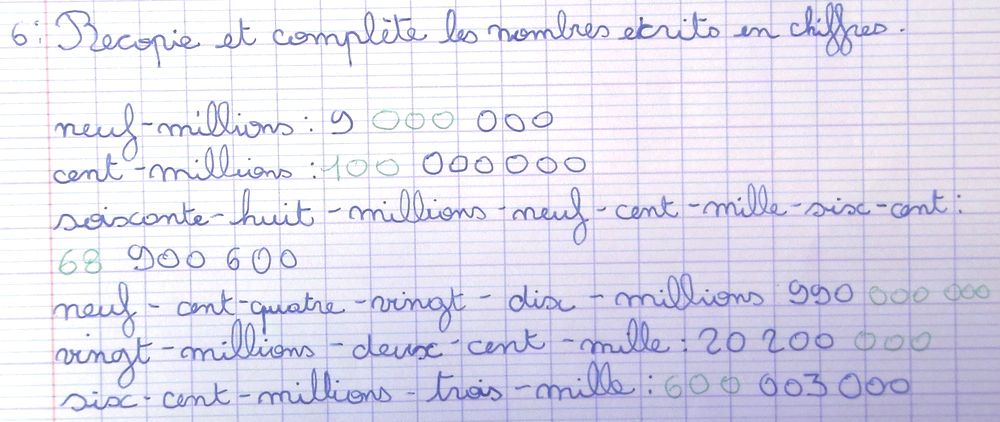 6: Recopie et complète les nombres ecrits en chiffres.
neuf-millions : 9 000 000
cent-millions : 100 000 000
soixante-huit-millions-neuf-cent-mille-six-cent :
68 900 600
neuf-cent-quatre-vingt-dix-millions 990 000 000
vingt-millions-deux-cent-mille : 20 200 000
six-cent-millions-trois-mille : 600 003 000